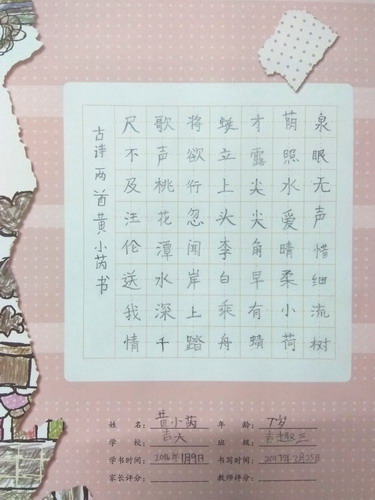 泉眼无声惜细流树
荫照水爱晴柔小荷
才露尖尖角早有蜻
蜓立上头李白乘舟
将欲行忽闻岸上踏
歌声桃花潭水深千
尺不及汪伦送我情
古诗两首黄小芮书
姓名：黄小芮 年龄：7岁
学校：吉大 班级：吉趣三
学书时间：2016年1月9日 书写时间：2017年2月25日
家长评分： 教师评分：